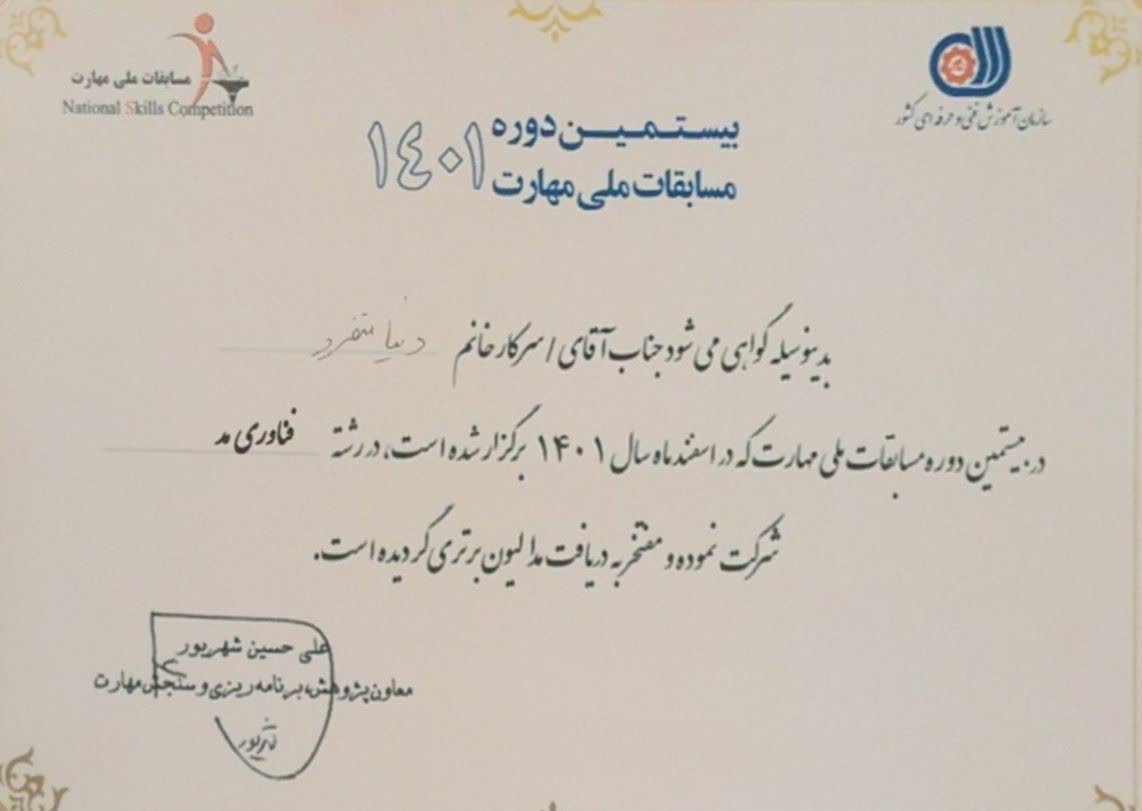 مسابقات ملی مهارت
National Skills Competition
سازمان آموزش فنی و حرفه ای کشور
بیستمین دوره
مسابقات ملی مهارت ۱۴۰۱
بدینوسیله گواهی می شود جناب آقای / سرکار خانم دنیا
در بیستمین دوره مسابقات ملی مهارت که در اسفند ماه سال ۱۴۰۱ برگزار شده است، در رشته فناوری مد
شرکت نموده و مفتخر به دریافت مدالیون برتری گردیده است.
علی حسین شهریور
معاون پژوهش، برنامه ریزی و سنجش مهارت